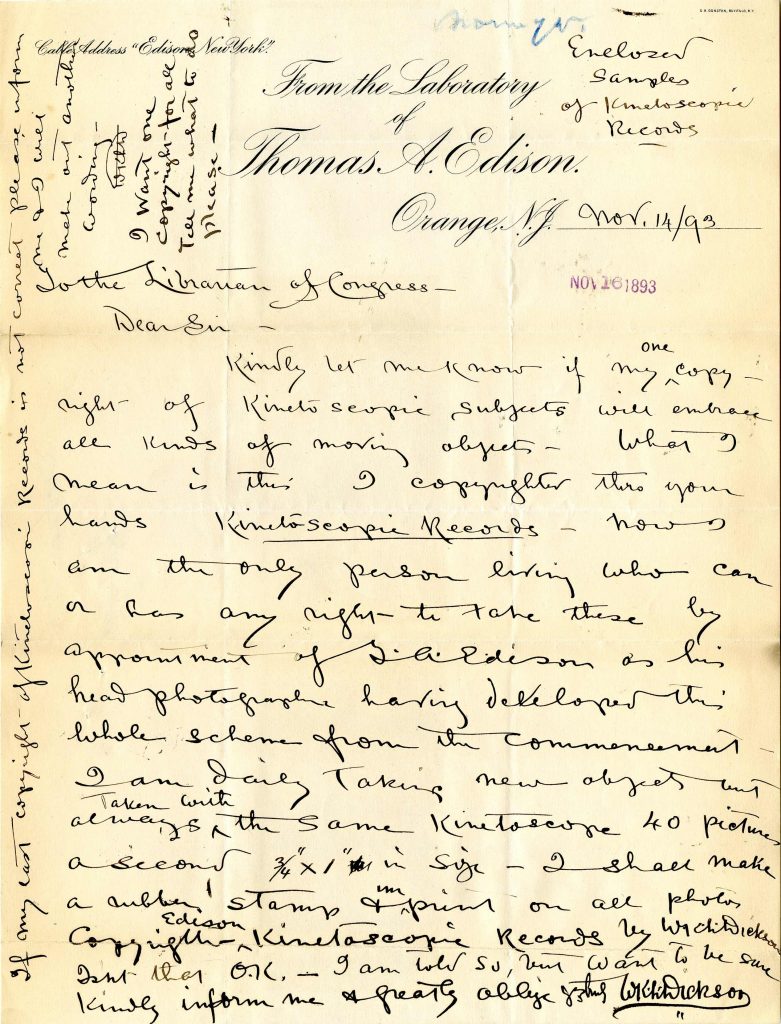 Cable Address "Edison, New York".
From the Laboratory
of
Thomas A. Edison.
Orange, N.J. Nov. 14/93
Enclosed
Samples
of Kinetoscopic
Records
NOV 16 1893
To the Librarian of Congress –
Dear Sir –
Kindly let me know if my one copy-
right of Kinetoscopic Subjects will embrace
all kinds of moving objects – What I
mean is this I copyrighted thro your
hands Kinetoscopic Records – now I
am the only person living who can
or has any right to take these by
appointment of T. A. Edison as his
head photographer having developed this
whole scheme from the commencement –
I am daily taking new objects but
always taken with the same Kinetoscope 40 pictures
a second 3/4" x 1" in size – I shall make
a rubber stamp & imprint on all photos
Copyright – Edison Kinetoscopic Records by WKLDickson
Isnt that O.K. – I am told so, but want to be sure
Kindly inform me & greatly oblige WKLDickson
If my last copyright of Kinetoscopic Records is not correct please inform
me & I will
make out another
wording –
I want one
copyright for all
Tell me what to do
please –